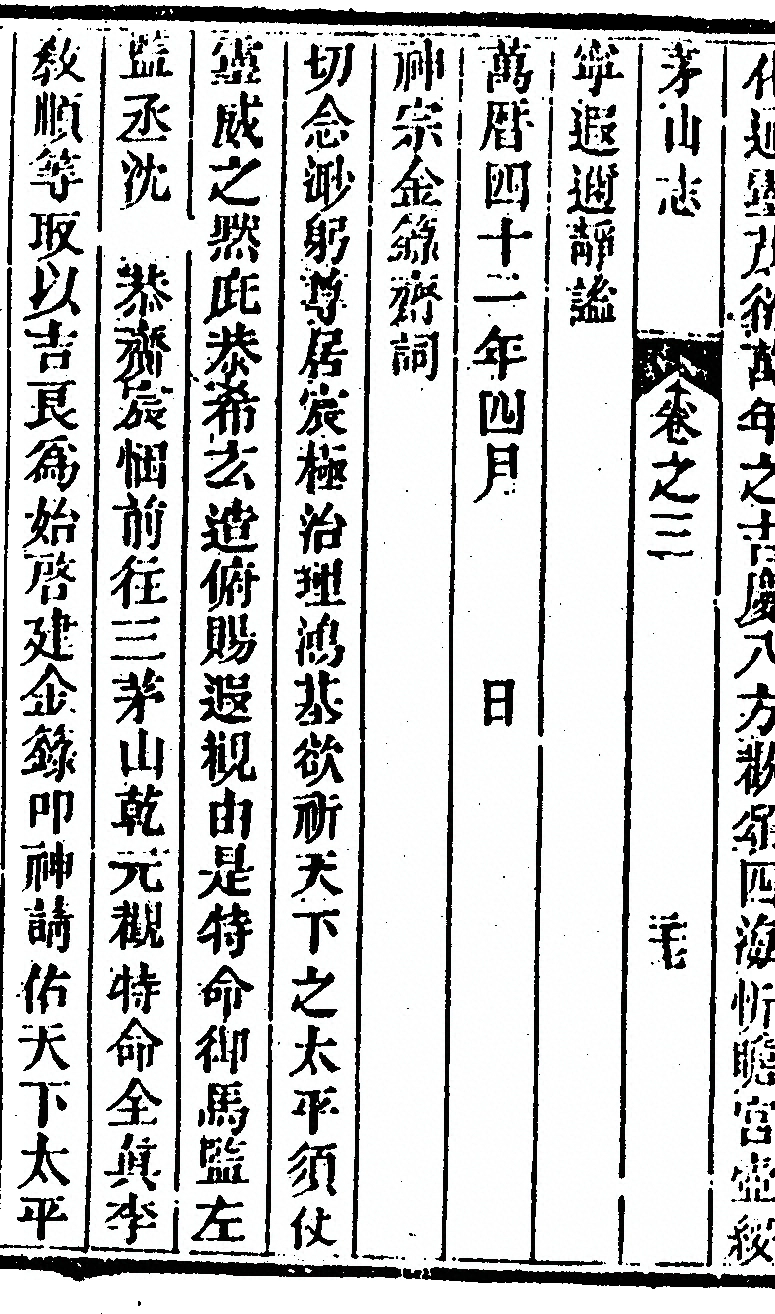 年之吉慶八方歡頌四海忻瞻宮壼綏
茅山志　卷之三　毛
寧遐邇靜謐
萬曆四十二年四月　日
神宗金籙齋詞
切念渺躬尊居宸極治理鴻基欲祈天下之太平須仗
靈威之默庇恭希玄造俯賜遐観由是特命御馬監左
監丞沈　恭齎宸悃前往三茅山乾元觀特命全真李
教順等取以吉良爲始啓建金籙叩神請佑天下太平